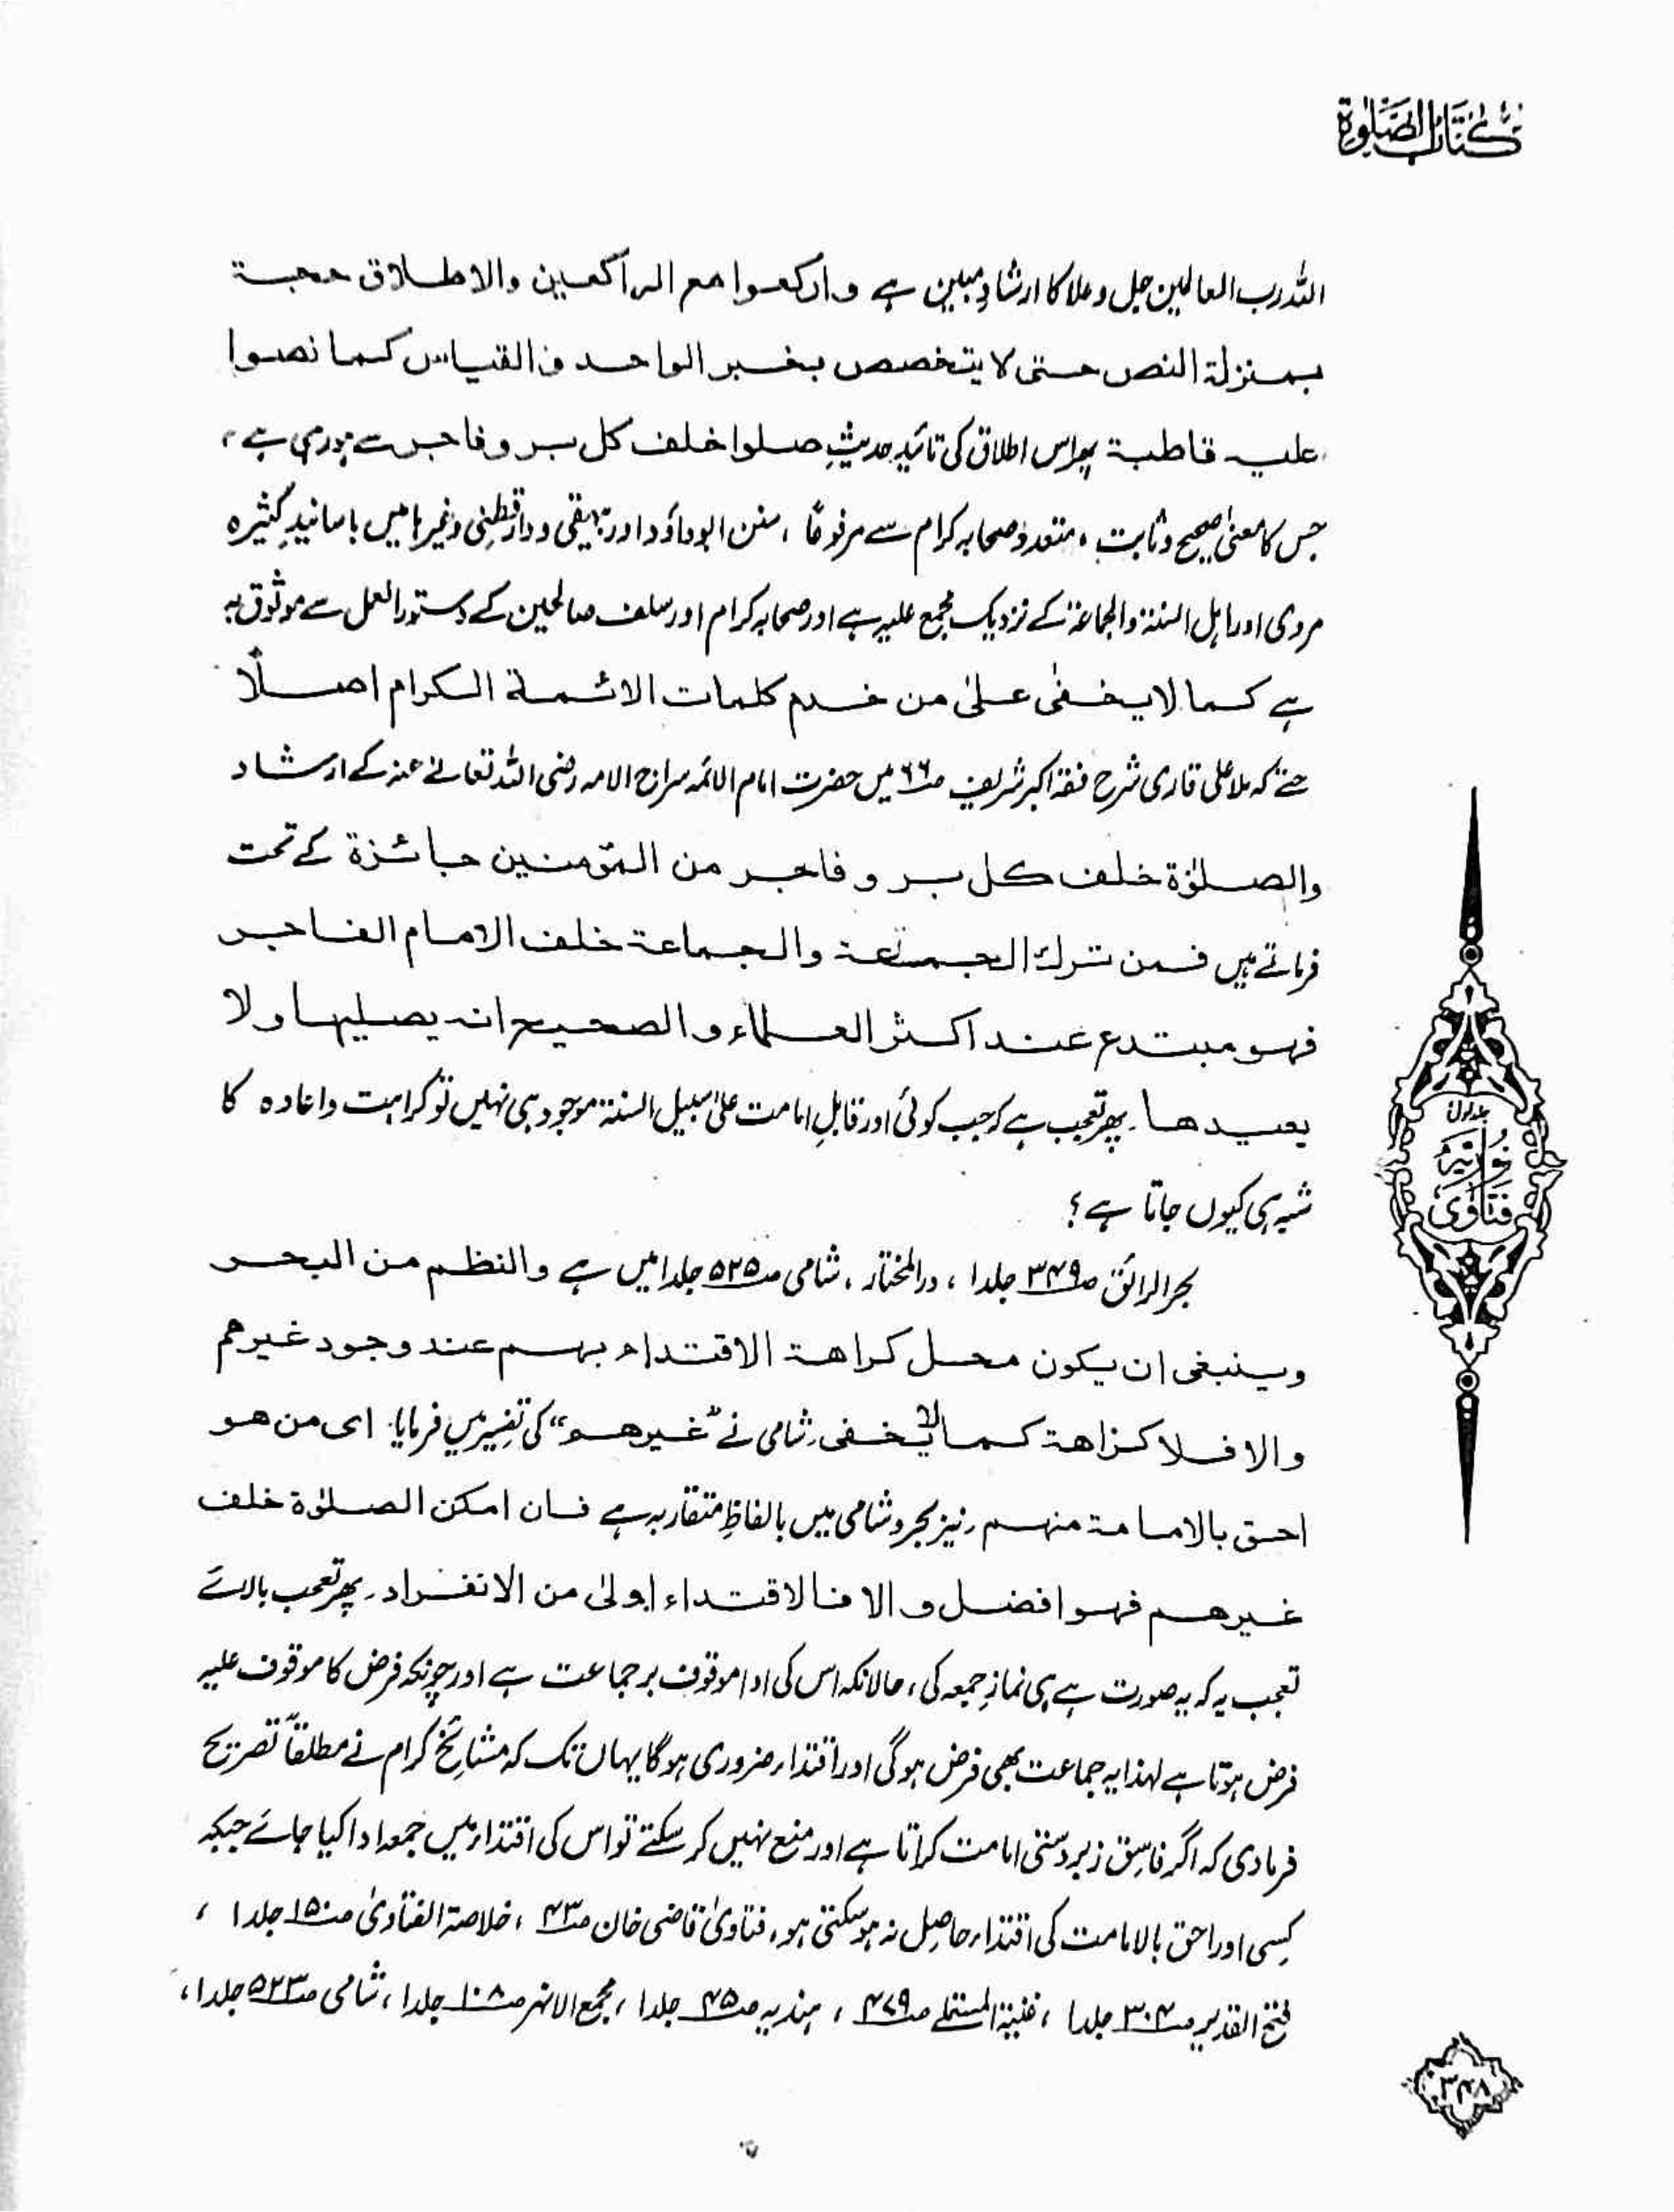 كتاب الصلوة
اللہ رب العالمین جل وعلا کا ارشادِ مبین ہے وارکعوا مع الراکعین والاطلاق حجة
بمنزلة النص حتى لا يتخصص بخبر الواحد والقياس كما نصوا
عليه قاطبة پھر اس اطلاق کی تائید حدیثِ صلوا خلف كل بر وفاجر سے ہو رہی ہے،
جس کا معنیٰ صحیح وثابت، متعدد صحابہ کرام سے مرفوعًا، سنن ابوداؤد اور بیہقی و دارقطنی وغیرہا میں باسانیدِ کثیرہ
مروی اور اہل السنۃ والجماعۃ کے نزدیک مجمع علیہ ہے اور صحابہ کرام اور سلف صالحین کے دستور العمل سے موثوق بہ
ہے كما لا يخفىٰ علىٰ من خدم كلمات الائمة الكرام اصلًا
حتے کہ ملا علی قاری شرح فقہ اکبر شریف صـ۶۶ میں حضرت امام الائمہ سراج الامہ رضی اللہ تعالےٰ عنہ کے ارشاد
والصلوٰة خلف كل بر و فاجر من المؤمنين جائزة کے تحت
فرماتے ہیں فمن ترك الجمعة والجماعة خلف الامام الفاجر
فهو مبتدع عند اكثر العلماء و الصحيح انه يصليها ولا
يعيدها۔ پھر تعجب ہے کہ جب کوئی اور قابلِ امامت علیٰ سبیل السنۃ موجود ہی نہیں تو کراہت واعادہ کا
شبہ ہی کیوں جاتا ہے؟
بحر الرائق صـ۳۴۹ جلد۱، در المختار، شامی صـ۵۲۵ جلد۱ میں ہے والنظم من البحر
وينبغى ان يكون محل كراهة الاقتداء بهم عند وجود غيرهم
والا فلا كراهة كما لا يخفى۔ شامی نے "غيرهم" کی تفسیر میں فرمایا: اى من هو
احق بالامامة منهم۔ نیز بحر وشامی میں بالفاظِ متقاربہ ہے فان امكن الصلوٰة خلف
غيرهم فهو افضل و الا فالاقتداء اولىٰ من الانفراد۔ پھر تعجب بالائے
تعجب یہ کہ یہ صورت ہے ہی نمازِ جمعہ کی، حالانکہ اس کی ادا موقوف بر جماعت ہے اور چونکہ فرض کا موقوف علیہ
فرض ہوتا ہے لہذا یہ جماعت بھی فرض ہوگی اور اقتداء ضروری ہوگا یہاں تک کہ مشائخ کرام نے مطلقاً تصریح
فرمادی کہ اگر فاسق زبردستی امامت کراتا ہے اور منع نہیں کر سکتے تو اس کی اقتداء میں جمعہ ادا کیا جائے جبکہ
کسی اور احق بالامامت کی اقتداء حاصل نہ ہو سکتی ہو، فتاویٰ قاضی خان صـ۴۳، خلاصۃ الفتاویٰ صـ۱۵۰ جلد ۱،
فتح القدیر صـ۳۰۴ جلد۱، غنیۃ المستملے صـ۴۷۹، ہندیہ صـ۴۵ جلد۱، مجمع الانہر صـ۱۰۸ جلد۱، شامی صـ۵۲۳ جلد۱،
جلد اول
نوریہ
فتاویٰ
۳۴۸